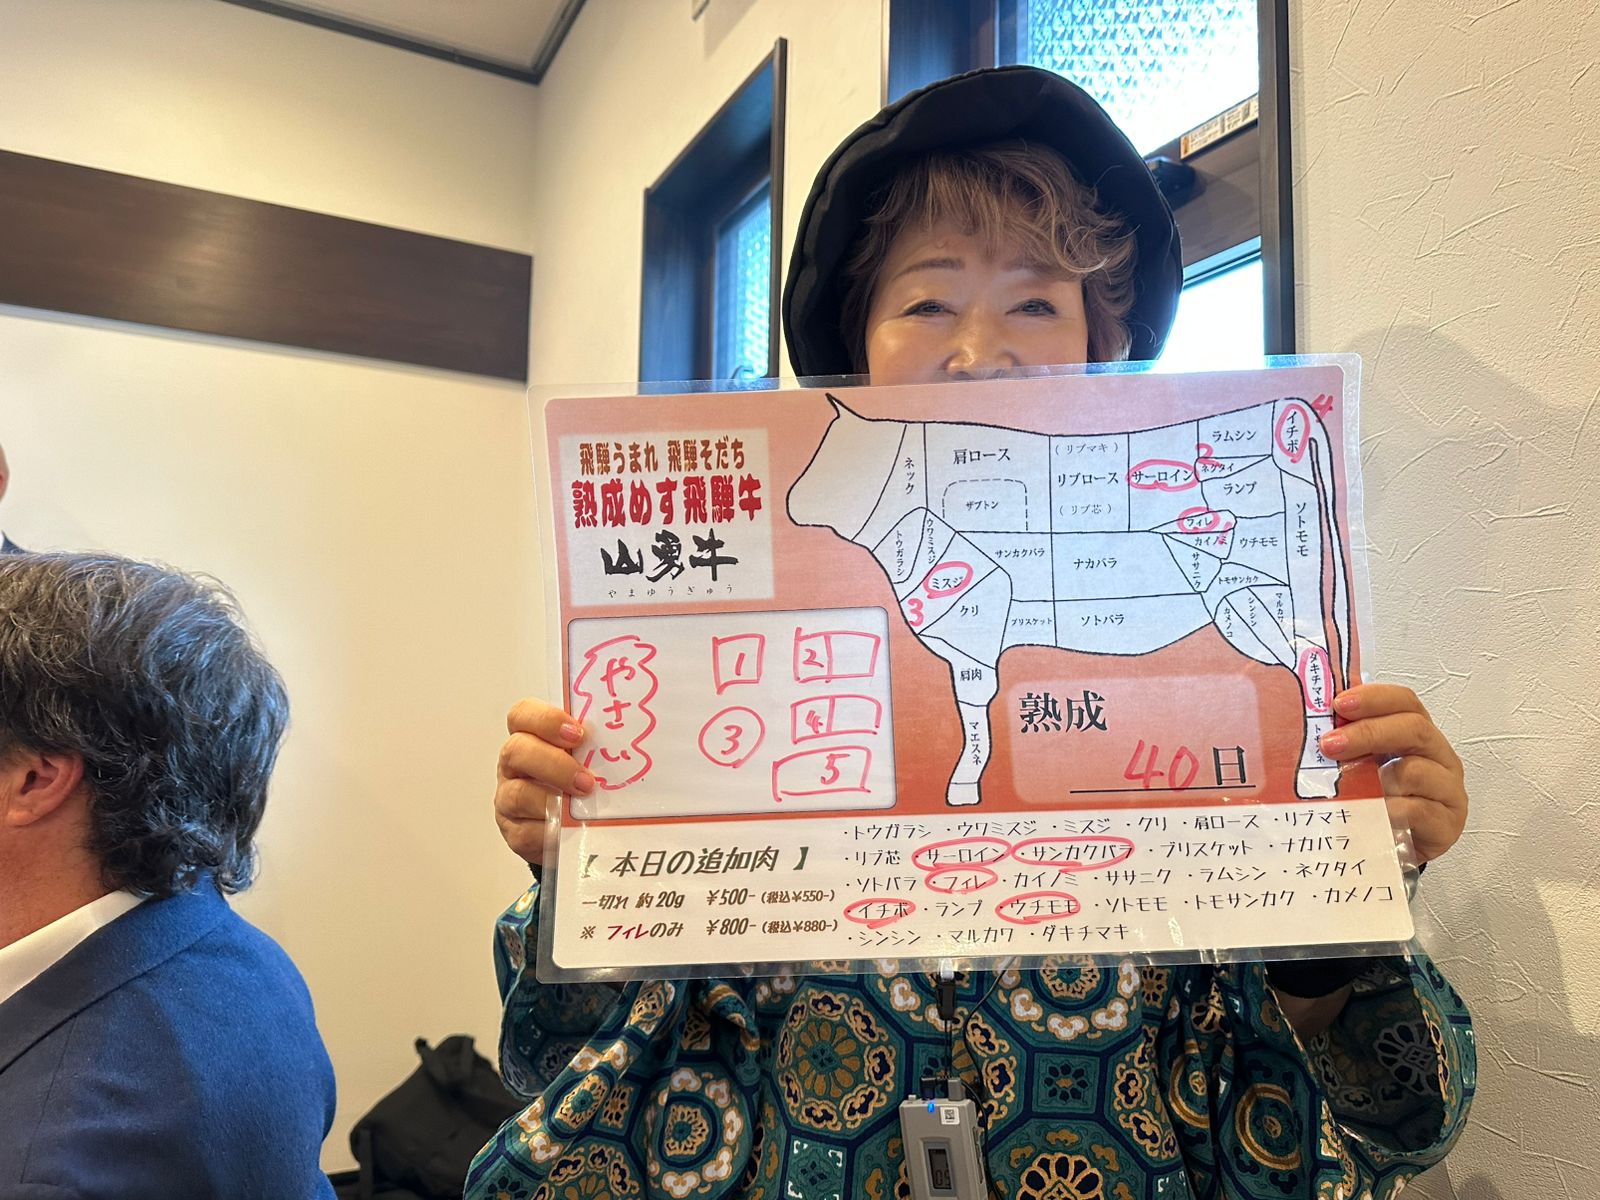 飛騨うまれ 飛騨そだち
熟成めす飛騨牛
山勇牛
やまゆうぎゅう
ネック
肩ロース
ザブトン
(リブマキ)
リブロース
(リブ芯)
サーロイン
2
ラムシン
ネクタイ
ランプ
イチボ
4
フィレ
1
カイノミ
ササニク
ウチモモ
ソトモモ
トウガラシ
ウワミスジ
ミスジ
3
クリ
サンカクバラ
ナカバラ
ブリスケット
ソトバラ
トモサンカク
カメノコ
シンシン
マルカワ
肩肉
マエスネ
ダキチマキ
トモズネ
やさい
1
2
3
4
5
熟成
40日
【 本日の追加肉 】
一切れ 約20g ¥500-(税込¥550-)
※ フィレのみ ¥800-(税込¥880-)
・トウガラシ ・ウワミスジ ・ミスジ ・クリ ・肩ロース ・リブマキ
・リブ芯 ・サーロイン ・サンカクバラ ・ブリスケット ・ナカバラ
・ソトバラ ・フィレ ・カイノミ ・ササニク ・ラムシン ・ネクタイ
・イチボ ・ランプ ・ウチモモ ・ソトモモ ・トモサンカク ・カメノコ
・シンシン ・マルカワ ・ダキチマキ